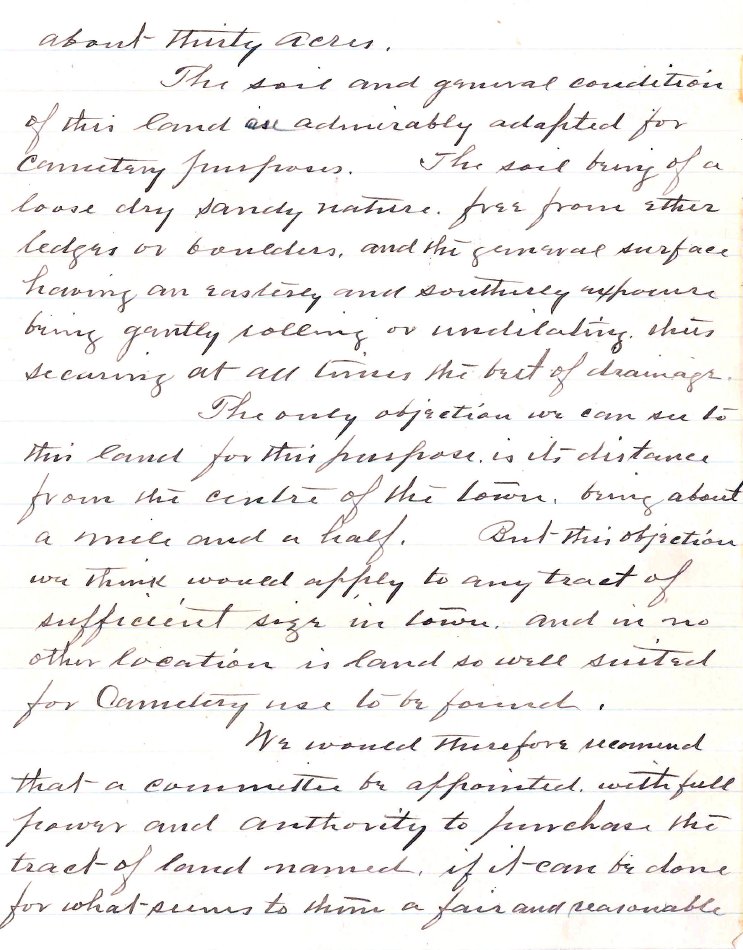 about thirty acres.
The soil and general condition
of this land are admirably adapted for
Cemetery purposes. The soil being of a
loose dry sandy nature. free from ether
ledges or boulders, and the general surface
having an easterly and southerly exposure
being gently rolling or undilating, thus
securing at all times the best of drainage.
The only objection we can see to
this land for this purpose, is its distance
from the centre of the town, being about
a mile and a half. But this objection
we think would apply to any tract of
sufficient size in town, and in no
other location is land so well suited
for Cemetery use to be found.
We would therefore recomend
that a committee be appointed, with full
power and authority to purchase the
tract of land named, if it can be done
for what seems to them a fair and reasonable